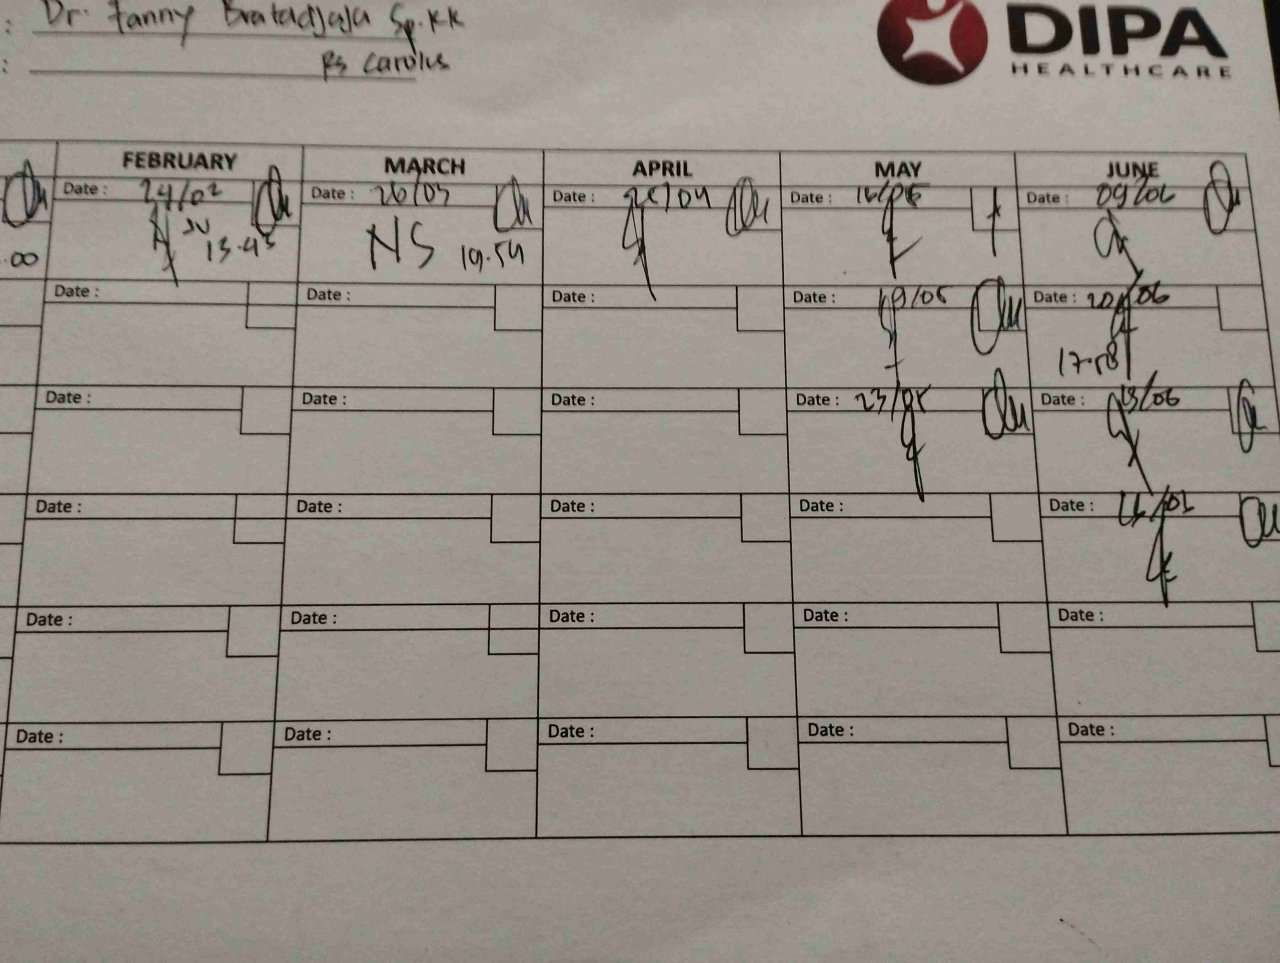 : Dr. Fanny Bratadjaja Sp.KK
: RS Carolus
DIPA
HEALTHCARE
FEBRUARY MARCH APRIL MAY JUNE
Date : 24/02 Date : 26/03 Date : Date : Date : 09/06
.00 13.45 NS 19.54
Date : Date : Date : Date : 19/05 Date : 20/06
17.58
Date : Date : Date : Date : 23/05 Date : 13/06
Date : Date : Date : Date : Date :
Date : Date : Date : Date : Date :
Date : Date : Date : Date : Date :